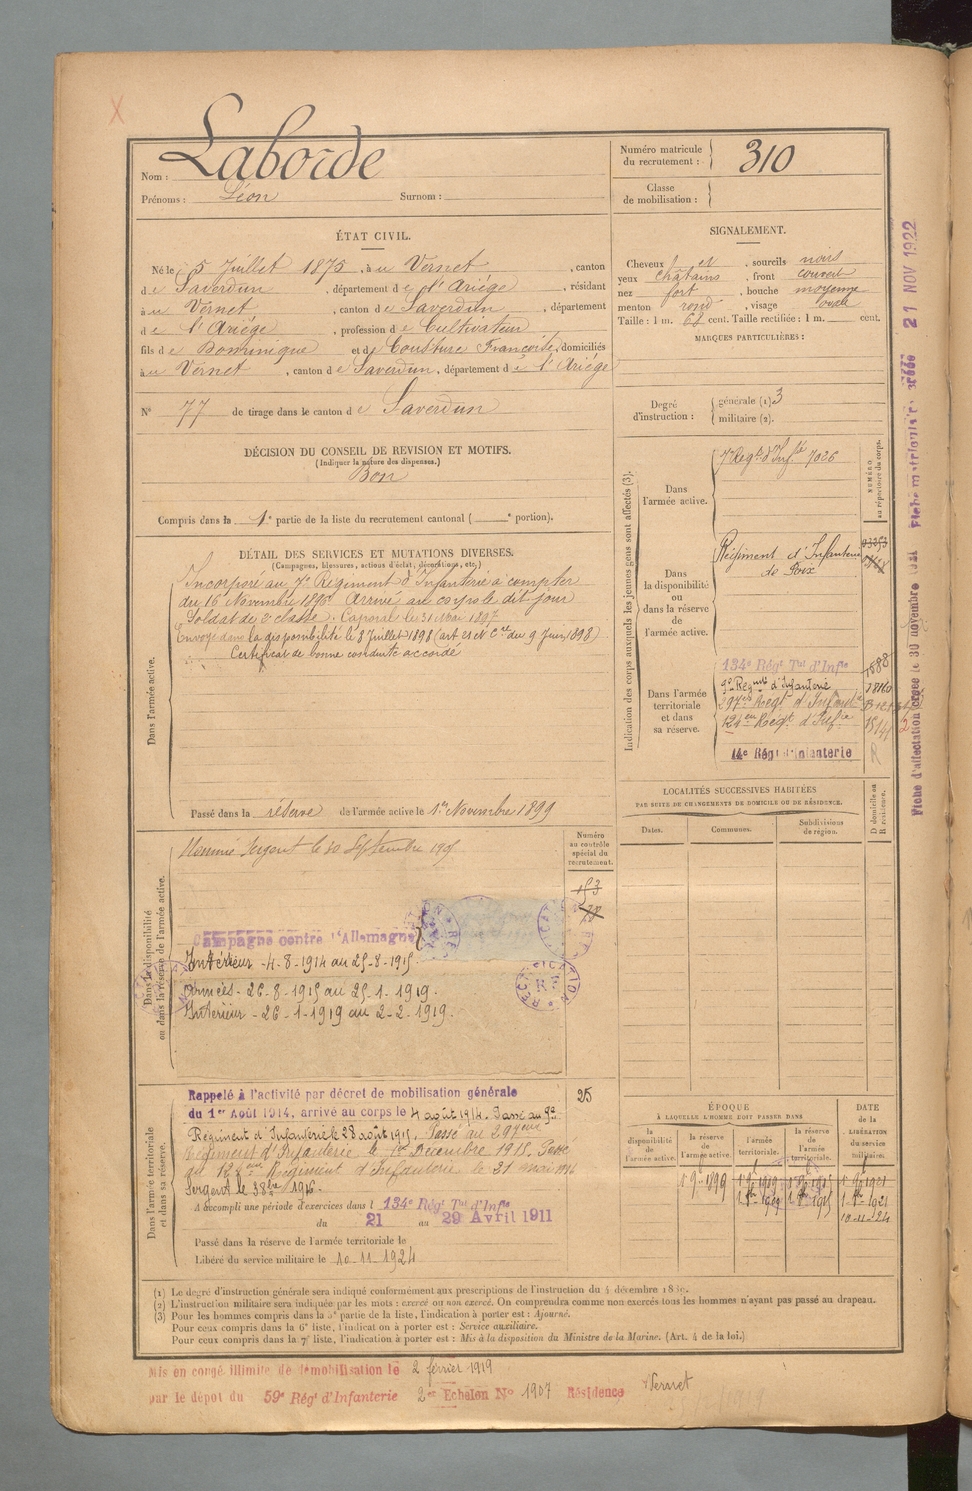 Nom : Laborde
Prénoms : Léon Surnom :
Numéro matricule du recrutement : 310
Classe de mobilisation :
ÉTAT CIVIL.
Né le 5 Juillet 1875, à u Vernet, canton
d e Saverdun, département d e l'Ariége, résidant
à u Vernet, canton d e Saverdun, département
d e l'Ariége, profession d e Cultivateur
fils d e Dominique et d e Cousture Francoise, domiciliés
à u Vernet, canton d e Saverdun, département d e l'Ariége
N° 77 de tirage dans le canton d e Saverdun
SIGNALEMENT.
Cheveux et, sourcils noirs
yeux chatains, front couvert
nez fort, bouche moyenne
menton rond, visage ovale
Taille : 1 m. 68 cent. Taille rectifiée : 1 m. cent.
MARQUES PARTICULIÈRES :
Degré d'instruction : générale (1). 3
militaire (2).
DÉCISION DU CONSEIL DE REVISION ET MOTIFS.
(Indiquer la nature des dispenses.)
Bon
Compris dans la 1e partie de la liste du recrutement cantonal ( e portion).
DÉTAIL DES SERVICES ET MUTATIONS DIVERSES.
(Campagnes, blessures, actions d'éclat, décorations, etc.)
Dans l'armée active.
Incorporé au 7e Regiment d'Infanterie à compter
du 16 Novembre 1896 Arrivé au corps le dit jour
Soldat de 2e classe. Caporal le 31 Mai 1897
Envoyé dans la disponibilité le 8 Juillet 1898 (art et N Cre du 9 Juin 1898)
Certificat de bonne conduite accordé
Passé dans la réserve de l'armée active le 1er Novembre 1899
Indication des corps auxquels les jeunes gens sont affectés (3).
NUMÉRO au répertoire du corps.
Dans l'armée active.
7e Regt d'Infie 7026
Dans la disponibilité ou dans la réserve de l'armée active.
Régiment d'Infanterie
de Foix
Dans l'armée territoriale et dans sa réserve.
134e Régt Tal d'Infie
9e Regiment d'Infanterie
297e Regt d'Infanterie
124eme Regt d'Infie
14e Régt d'Infanterie
R
LOCALITÉS SUCCESSIVES HABITÉES
PAR SUITE DE CHANGEMENTS DE DOMICILE OU DE RÉSIDENCE.
Dates. Communes. Subdivisions de région. D domicile ou R résidence.
Dans la disponibilité ou dans la réserve de l'armée active.
Numéro au contrôle spécial du recrutement.
153
Nommé Sergent le 30 Septembre
Campagne contre l'Allemagne
Intérieur - 4-8-1914 au 25-8-1915
Armées - 26-8-1915 au 25-1-1919.
Intérieur - 26-1-1919 au 2-2-1919.
RECTIFICATION
25
Dans l'armée territoriale et dans sa réserve.
Rappelé à l'activité par décret de mobilisation générale
du 1er Août 1914, arrivé au corps le 4 août 1914. Passé au 9e
Regiment d'Infanterie le 28 août 1915. Passé au 297eme
Régiment d'Infanterie le 1er Décembre 1915. Passé
au 124eme Régiment d'Infanterie le 21 mai 1916
Sergent le 1916.
A accompli une période d'exercices dans l 134e Régt Tal d'Infie
du 21 au 29 Avril 1911
Passé dans la réserve de l'armée territoriale le
Libéré du service militaire le 10-11-1924
ÉPOQUE
À LAQUELLE L'HOMME DOIT PASSER DANS
la disponibilité de l'armée active. la réserve de l'armée active. l'armée territoriale. la réserve de l'armée territoriale.
DATE de la LIBÉRATION du service militaire.
10-11-24
(1) Le degré d'instruction générale sera indiqué conformément aux prescriptions de l'instruction du 4 décembre 1889.
(2) L'instruction militaire sera indiquée par les mots : exercé ou non exercé. On comprendra comme non exercés tous les hommes n'ayant pas passé au drapeau.
(3) Pour les hommes compris dans la 5e partie de la liste, l'indication à porter est : Ajourné.
Pour ceux compris dans la 6e liste, l'indication à porter est : Service auxiliaire.
Pour ceux compris dans la 7e liste, l'indication à porter est : Mis à la disposition du Ministre de la Marine. (Art. 4 de la loi.)
Mis en congé illimité de démobilisation le 2 février 1919
par le dépôt du 59e Régt d'Infanterie 2e Echelon N° 1907 Résidence Vernet
Fiche d'affectation créée le 30 novembre Fiche matriculaire créée 21 NOV 1922